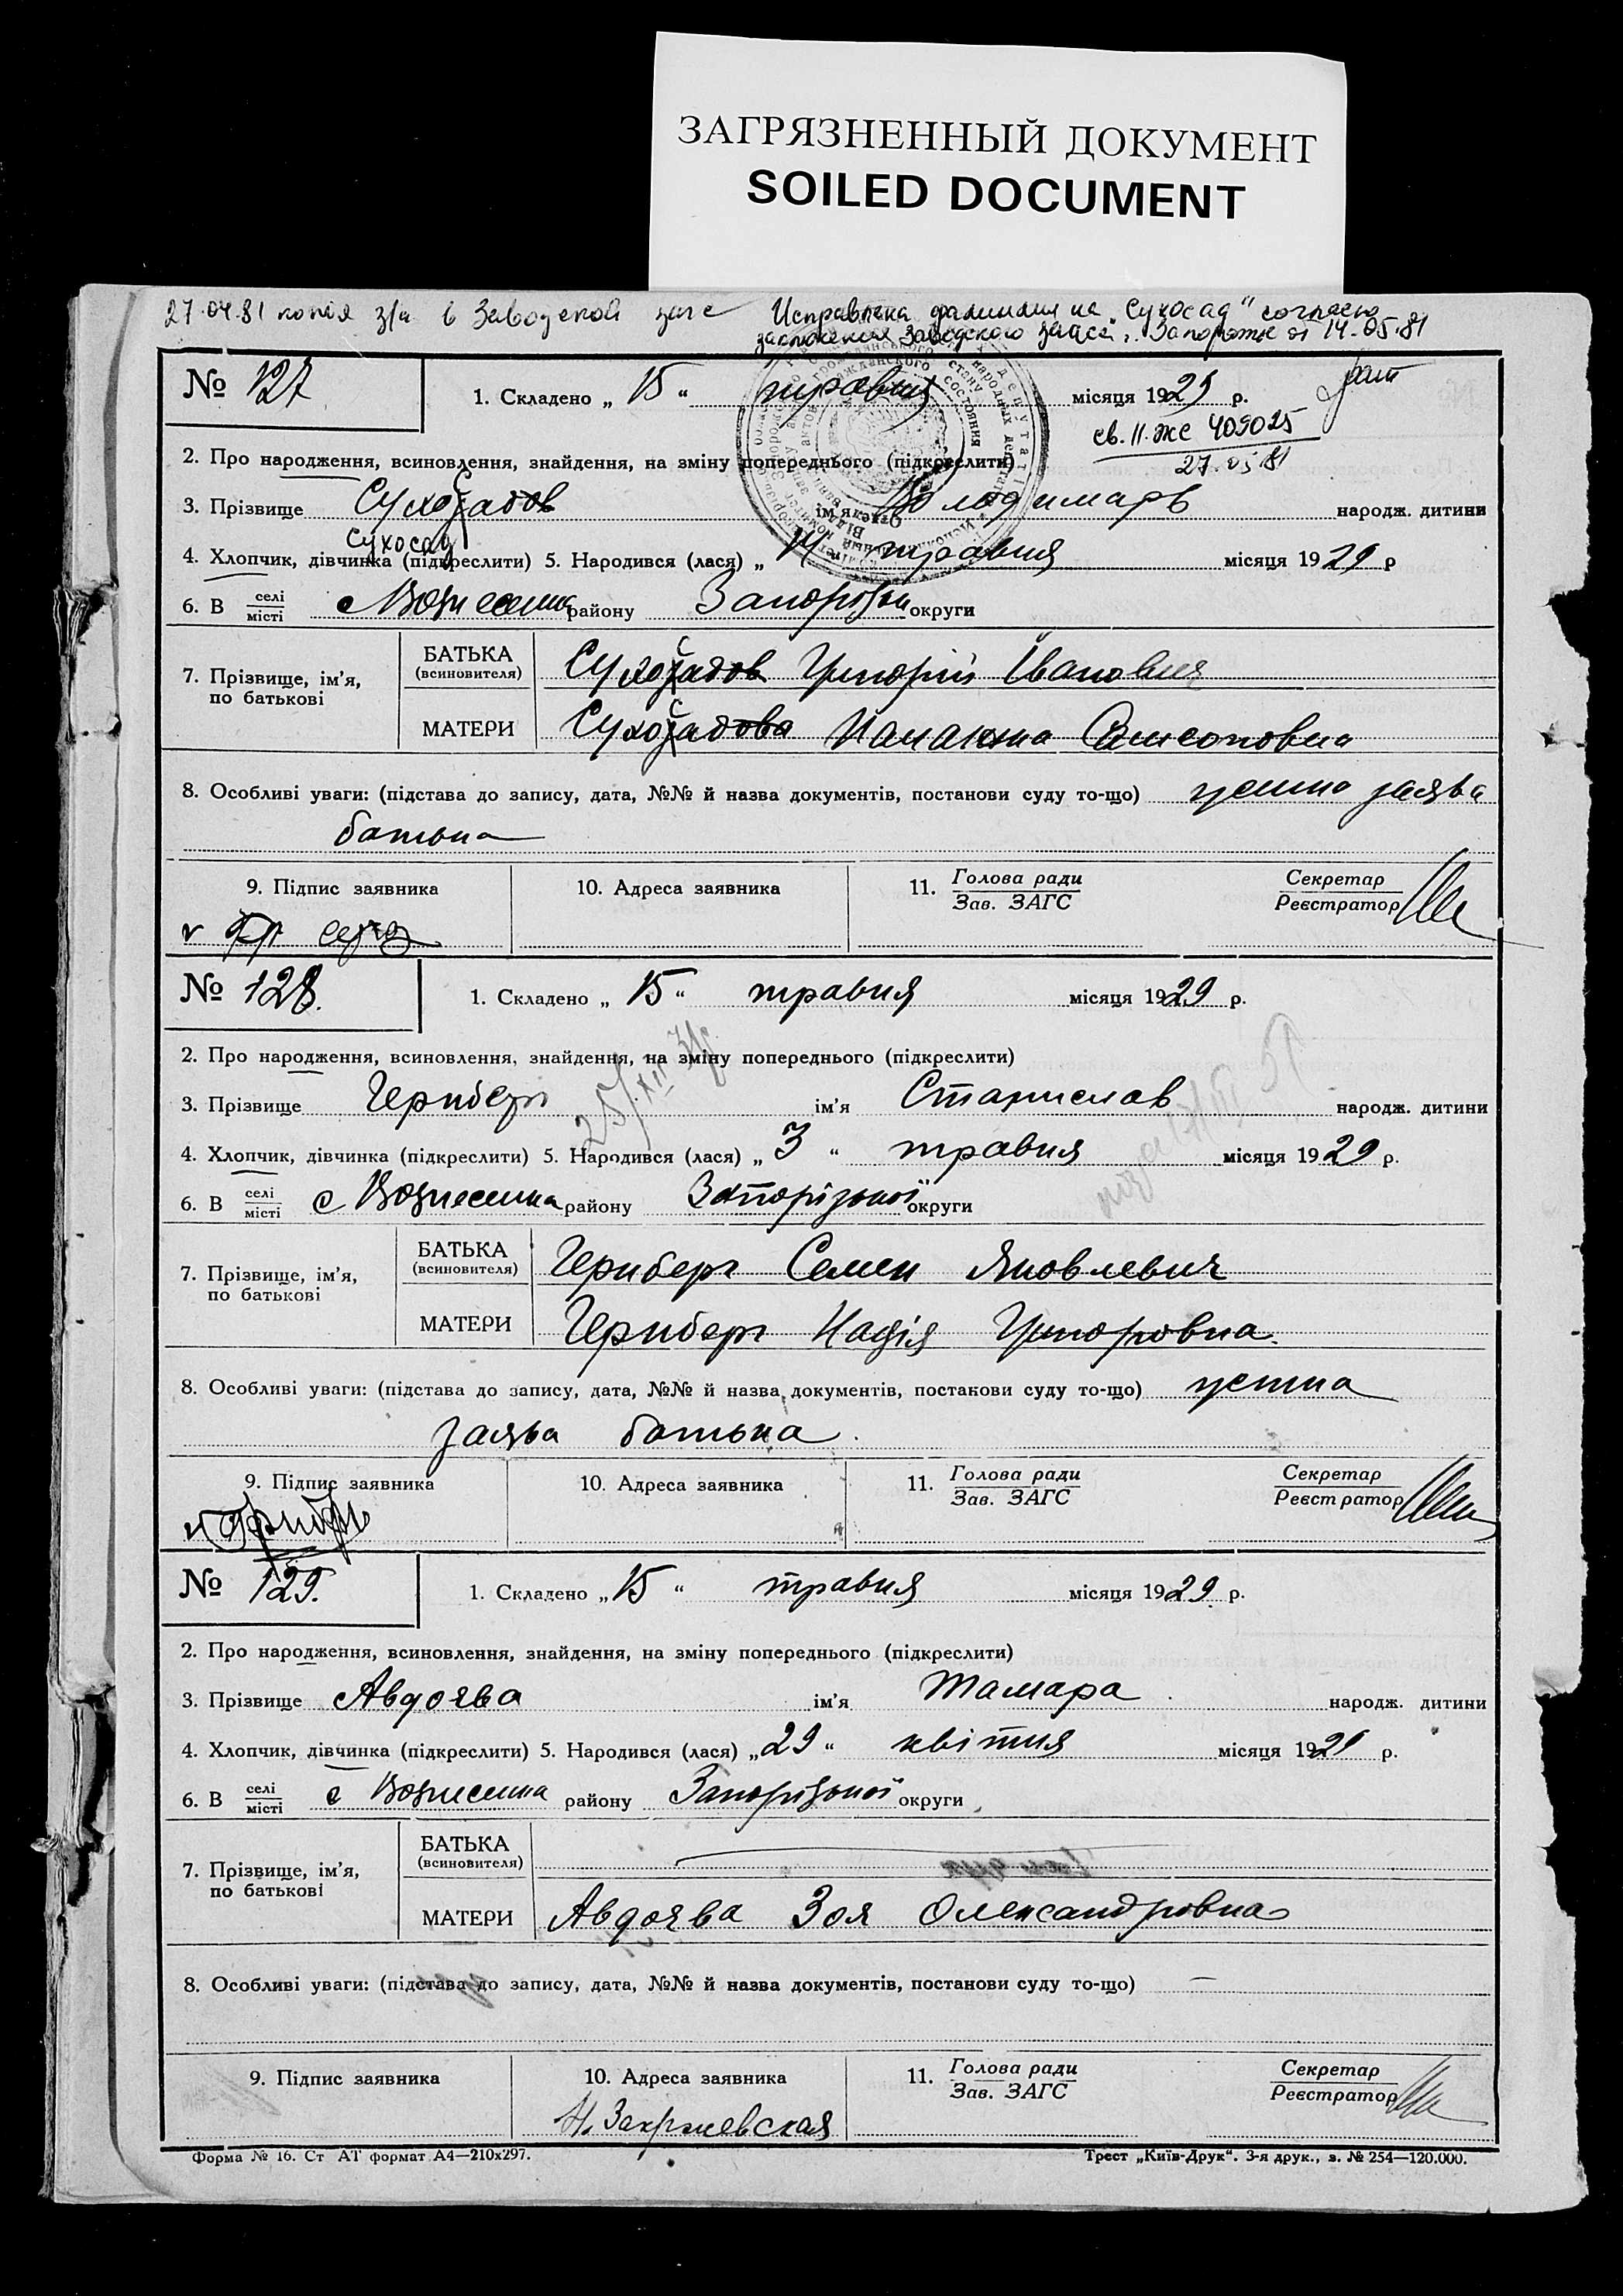 ЗАГРЯЗНЕННЫЙ ДОКУМЕНТ
SOILED DOCUMENT
27.04.81 копія з/а в Заводской загс
Исправлена фамилия на „Сухосад“ согласно
заключения Заводского загса г. Запорожье от 14.05.81
№ 127
1. Складено „ 15 “ травня місяця 1929 р.
св. II-ЖС 409025
27.05.81
2. Про народження, всиновлення, знайдення, на зміну попереднього (підкреслити)
3. Прізвище Сухосадов ім'я Володимаръ народж. дитини
Сухосад
4. Хлопчик, дівчинка (підкреслити) 5. Народився (лася) „ 14 травня місяця 1929 р
6. В селі/місті с Вознесенка району Запорізьк округи
7. Прізвище, ім'я, по батькові
БАТЬКА (всиновителя) Сухосадов Григорій Іванович
МАТЕРИ Сухосадова Самсоновна
8. Особливі уваги: (підстава до запису, дата, №№ й назва документів, постанови суду то-що) устна заява
батька
9. Підпис заявника 10. Адреса заявника 11. Голова ради/Зав. ЗАГС Секретар/Реєстратор
№ 128.
1. Складено „ 15 “ травня місяця 1929 р.
2. Про народження, всиновлення, знайдення, на зміну попереднього (підкреслити)
3. Прізвище Гернберг ім'я Станислав народж. дитини
4. Хлопчик, дівчинка (підкреслити) 5. Народився (лася) „ 3 “ травня місяця 1929 р.
6. В селі/місті с Вознесенка району Запорізької округи
7. Прізвище, ім'я, по батькові
БАТЬКА (всиновителя) Гернберг Семен Яковлевич
МАТЕРИ Гернберг Надія Григоровна.
8. Особливі уваги: (підстава до запису, дата, №№ й назва документів, постанови суду то-що) устна
заява батька.
9. Підпис заявника 10. Адреса заявника 11. Голова ради/Зав. ЗАГС Секретар/Реєстратор
№ 129.
1. Складено „ 15 “ травня місяця 1929 р.
2. Про народження, всиновлення, знайдення, на зміну попереднього (підкреслити)
3. Прізвище Авдоева ім'я Тамара народж. дитини
4. Хлопчик, дівчинка (підкреслити) 5. Народився (лася) „ 29 “ квітня місяця 1929 р.
6. В селі/місті с Вознесенка району Запорізької округи
7. Прізвище, ім'я, по батькові
БАТЬКА (всиновителя)
МАТЕРИ Авдоева Зоя Олександровна
8. Особливі уваги: (підстава до запису, дата, №№ й назва документів, постанови суду то-що) —
9. Підпис заявника 10. Адреса заявника 11. Голова ради/Зав. ЗАГС Секретар/Реєстратор
Н. Закржевская
Форма № 16. Ст АТ формат А4—210х297. Трест „Київ-Друк“. 3-я друк., з. № 254—120.000.